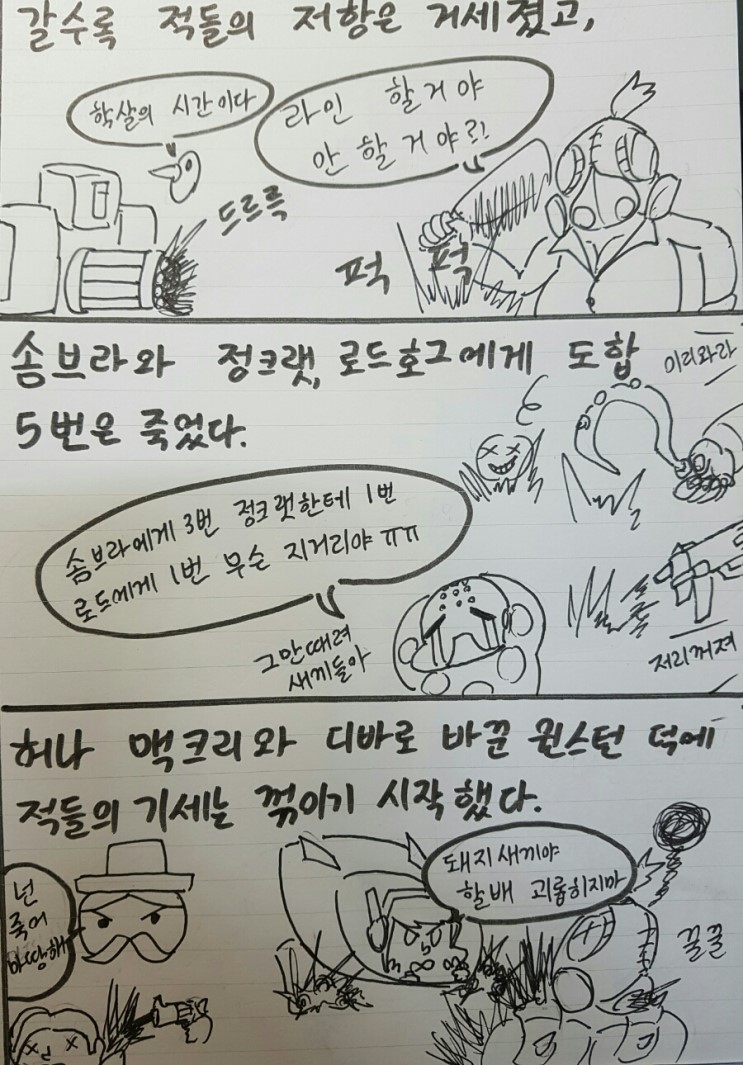 갈수록 적들의 저항은 거세졌고,
학살의 시간이다
라인 할거야
안 할거야?!
드르륵
퍽 퍽
솜브라와 정크랫, 로드호그에게 도합
5번은 죽었다.
이리와라
솜브라에게 3번 정크랫한테 1번
로드에게 1번 무슨 지거리야 ㅠㅠ
그만때려
새끼들아
저리꺼져
허나 맥크리와 디바로 바꾼 윈스턴 덕에
적들의 기세는 꺾이기 시작했다.
넌
죽어
마땅해
돼지새끼야
할배 괴롭히지마
꿀꿀